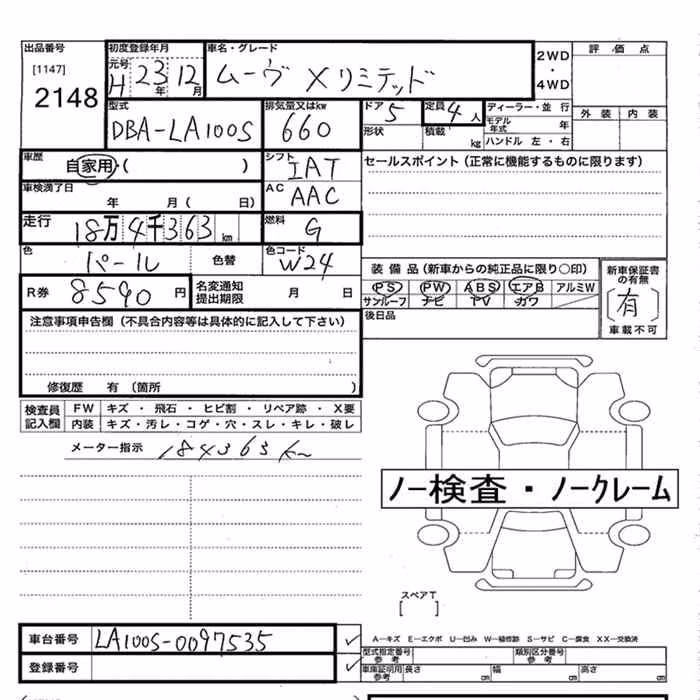 出品番号 初度登録年月 車名・グレード 評価点
[1147] 元号 H 23年 12月 ムーヴ Xリミテッド 2WD・4WD
2148
型式 排気量又はkw ドア 定員 ディーラー・並行 外装 内装
DBA-LA100S 660 5 4人 モデル年式 年
形状 積載 kg ハンドル 左・右
車歴 自家用・( ) シフト IAT セールスポイント(正常に機能するものに限ります)
車検満了日 年 月( 日) AC AAC
走行 18万4千363km 燃料 G
色 パール 色替 色コード W24
装備品(新車からの純正品に限り○印) 新車保証書の有無
R券 8590円 名変通知提出期限 月 日 PS PW ABS エアB アルミW [有]
サンルーフ ナビ TV カワ
注意事項申告欄(不具合内容等は具体的に記入して下さい) 後日品 車載不可
修復歴 有(箇所 )
検査員記入欄 FW キズ・飛石・ヒビ割・リペア跡・X要
内装 キズ・汚レ・コゲ・穴・スレ・キレ・破レ
メーター指示 184363km
ノー検査・ノークレーム
スペアT
[ ]
車台番号 LA100S-0097535 ✓ A―キズ E―エクボ U―凹み W―補修跡 S―サビ C―腐食 XX―交換済
型式指定番号 参考 類別区分番号 参考
登録番号 ✓ 車庫証明用参考 長さ cm 幅 cm 高さ cm